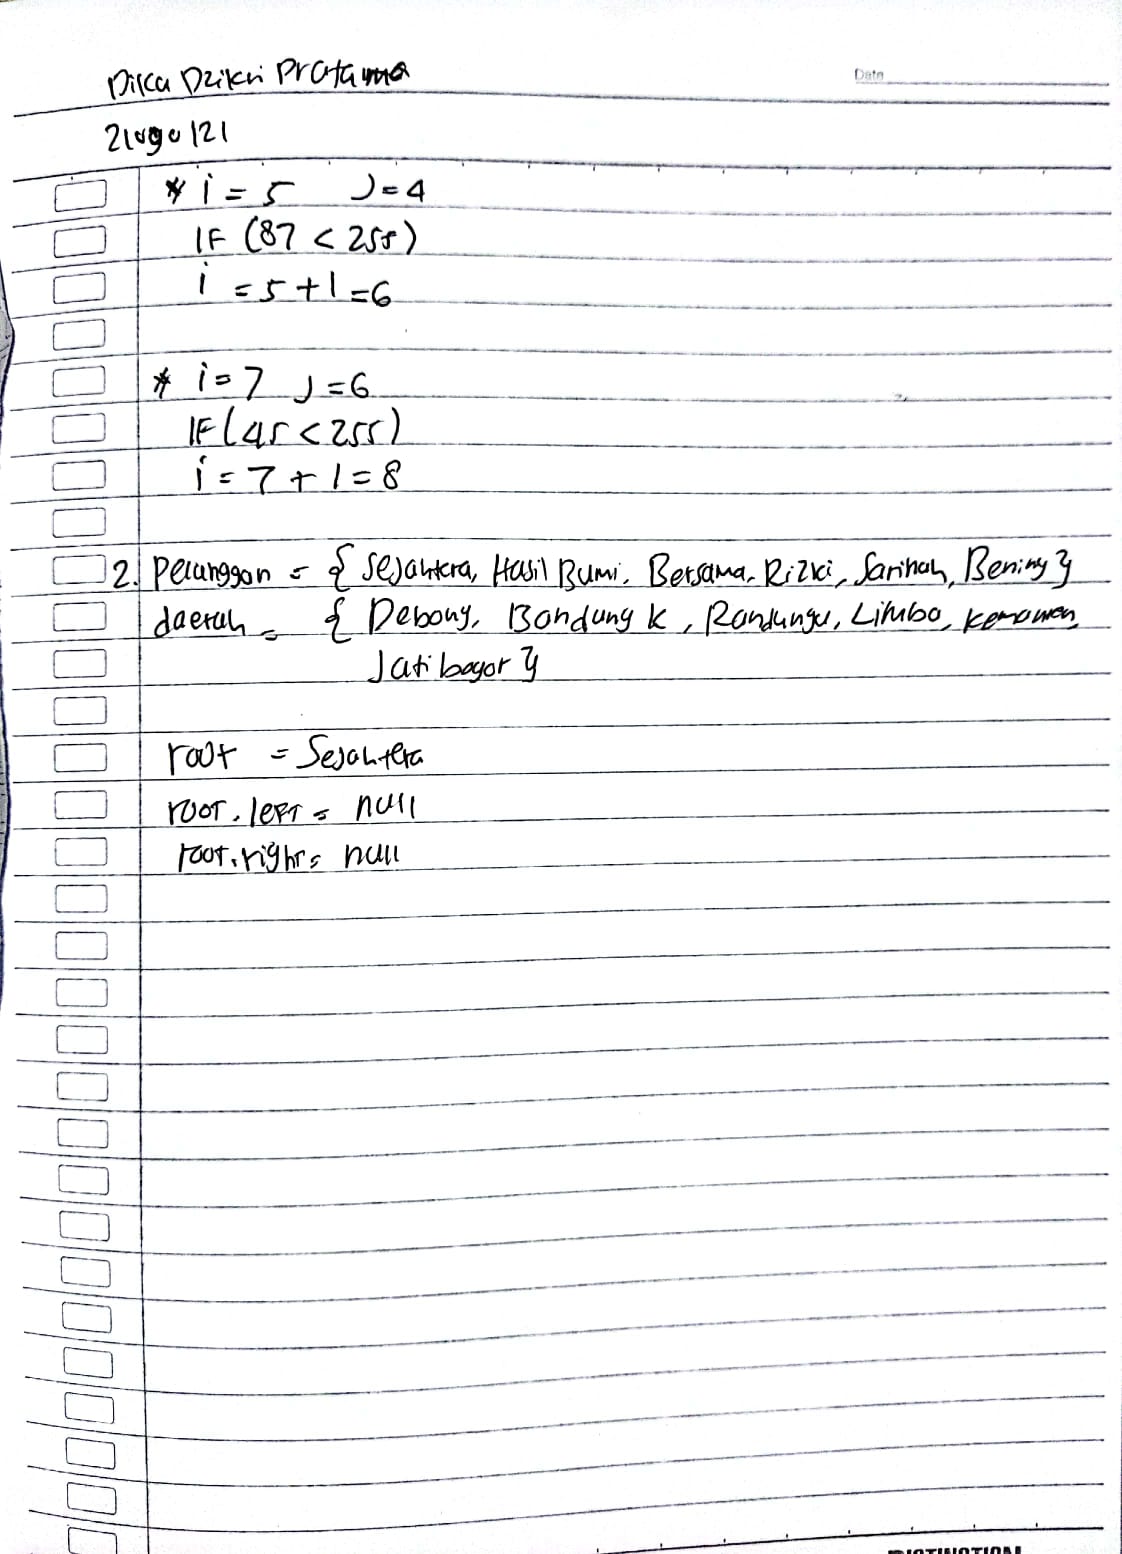 Dika Dzikri Pratama
Date
* i = 5 J = 4
IF (87 < 255)
i = 5 + 1 = 6
* i = 7 J = 6
IF (45 < 255)
i = 7 + 1 = 8
2. Pelanggan = { Sejahtera, Hasil Bumi, Bersama, Rizki, Sarinah, Bening }
daerah = { Debong, Bandung K, Randungu, Limbo,
Jatibogor }
root = Sejahtera
root.left = null
root.right = null